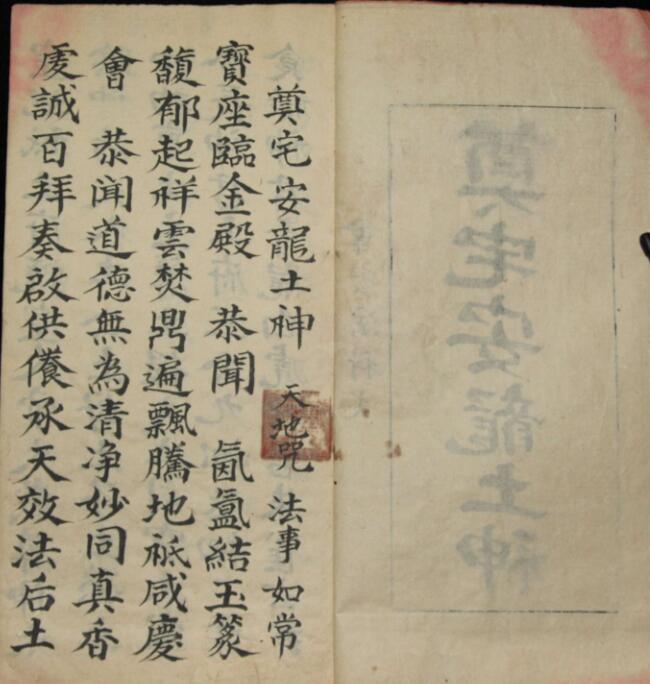 奠宅安龍土神 天地咒 法事如常
寳座臨金殿 恭聞 氤氳結玉篆
馥郁起祥雲焚鼎遍飄騰地祇咸慶
會 恭聞道德無為清净妙同真香
虔誠百拜奏啟供養承天效法后土
奠宅安龍土神